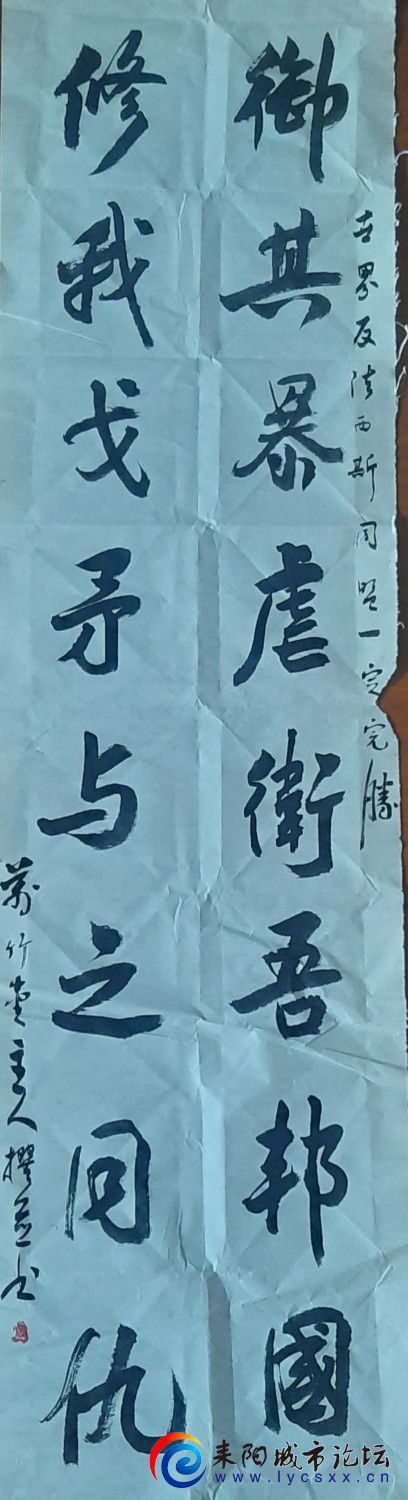 世界反法西斯同盟一定完勝
御其暴虐衛吾邦國
修我戈矛与之同仇
萬竹堂主人撰並书
耒阳城市论坛
www.lycsxx.cn